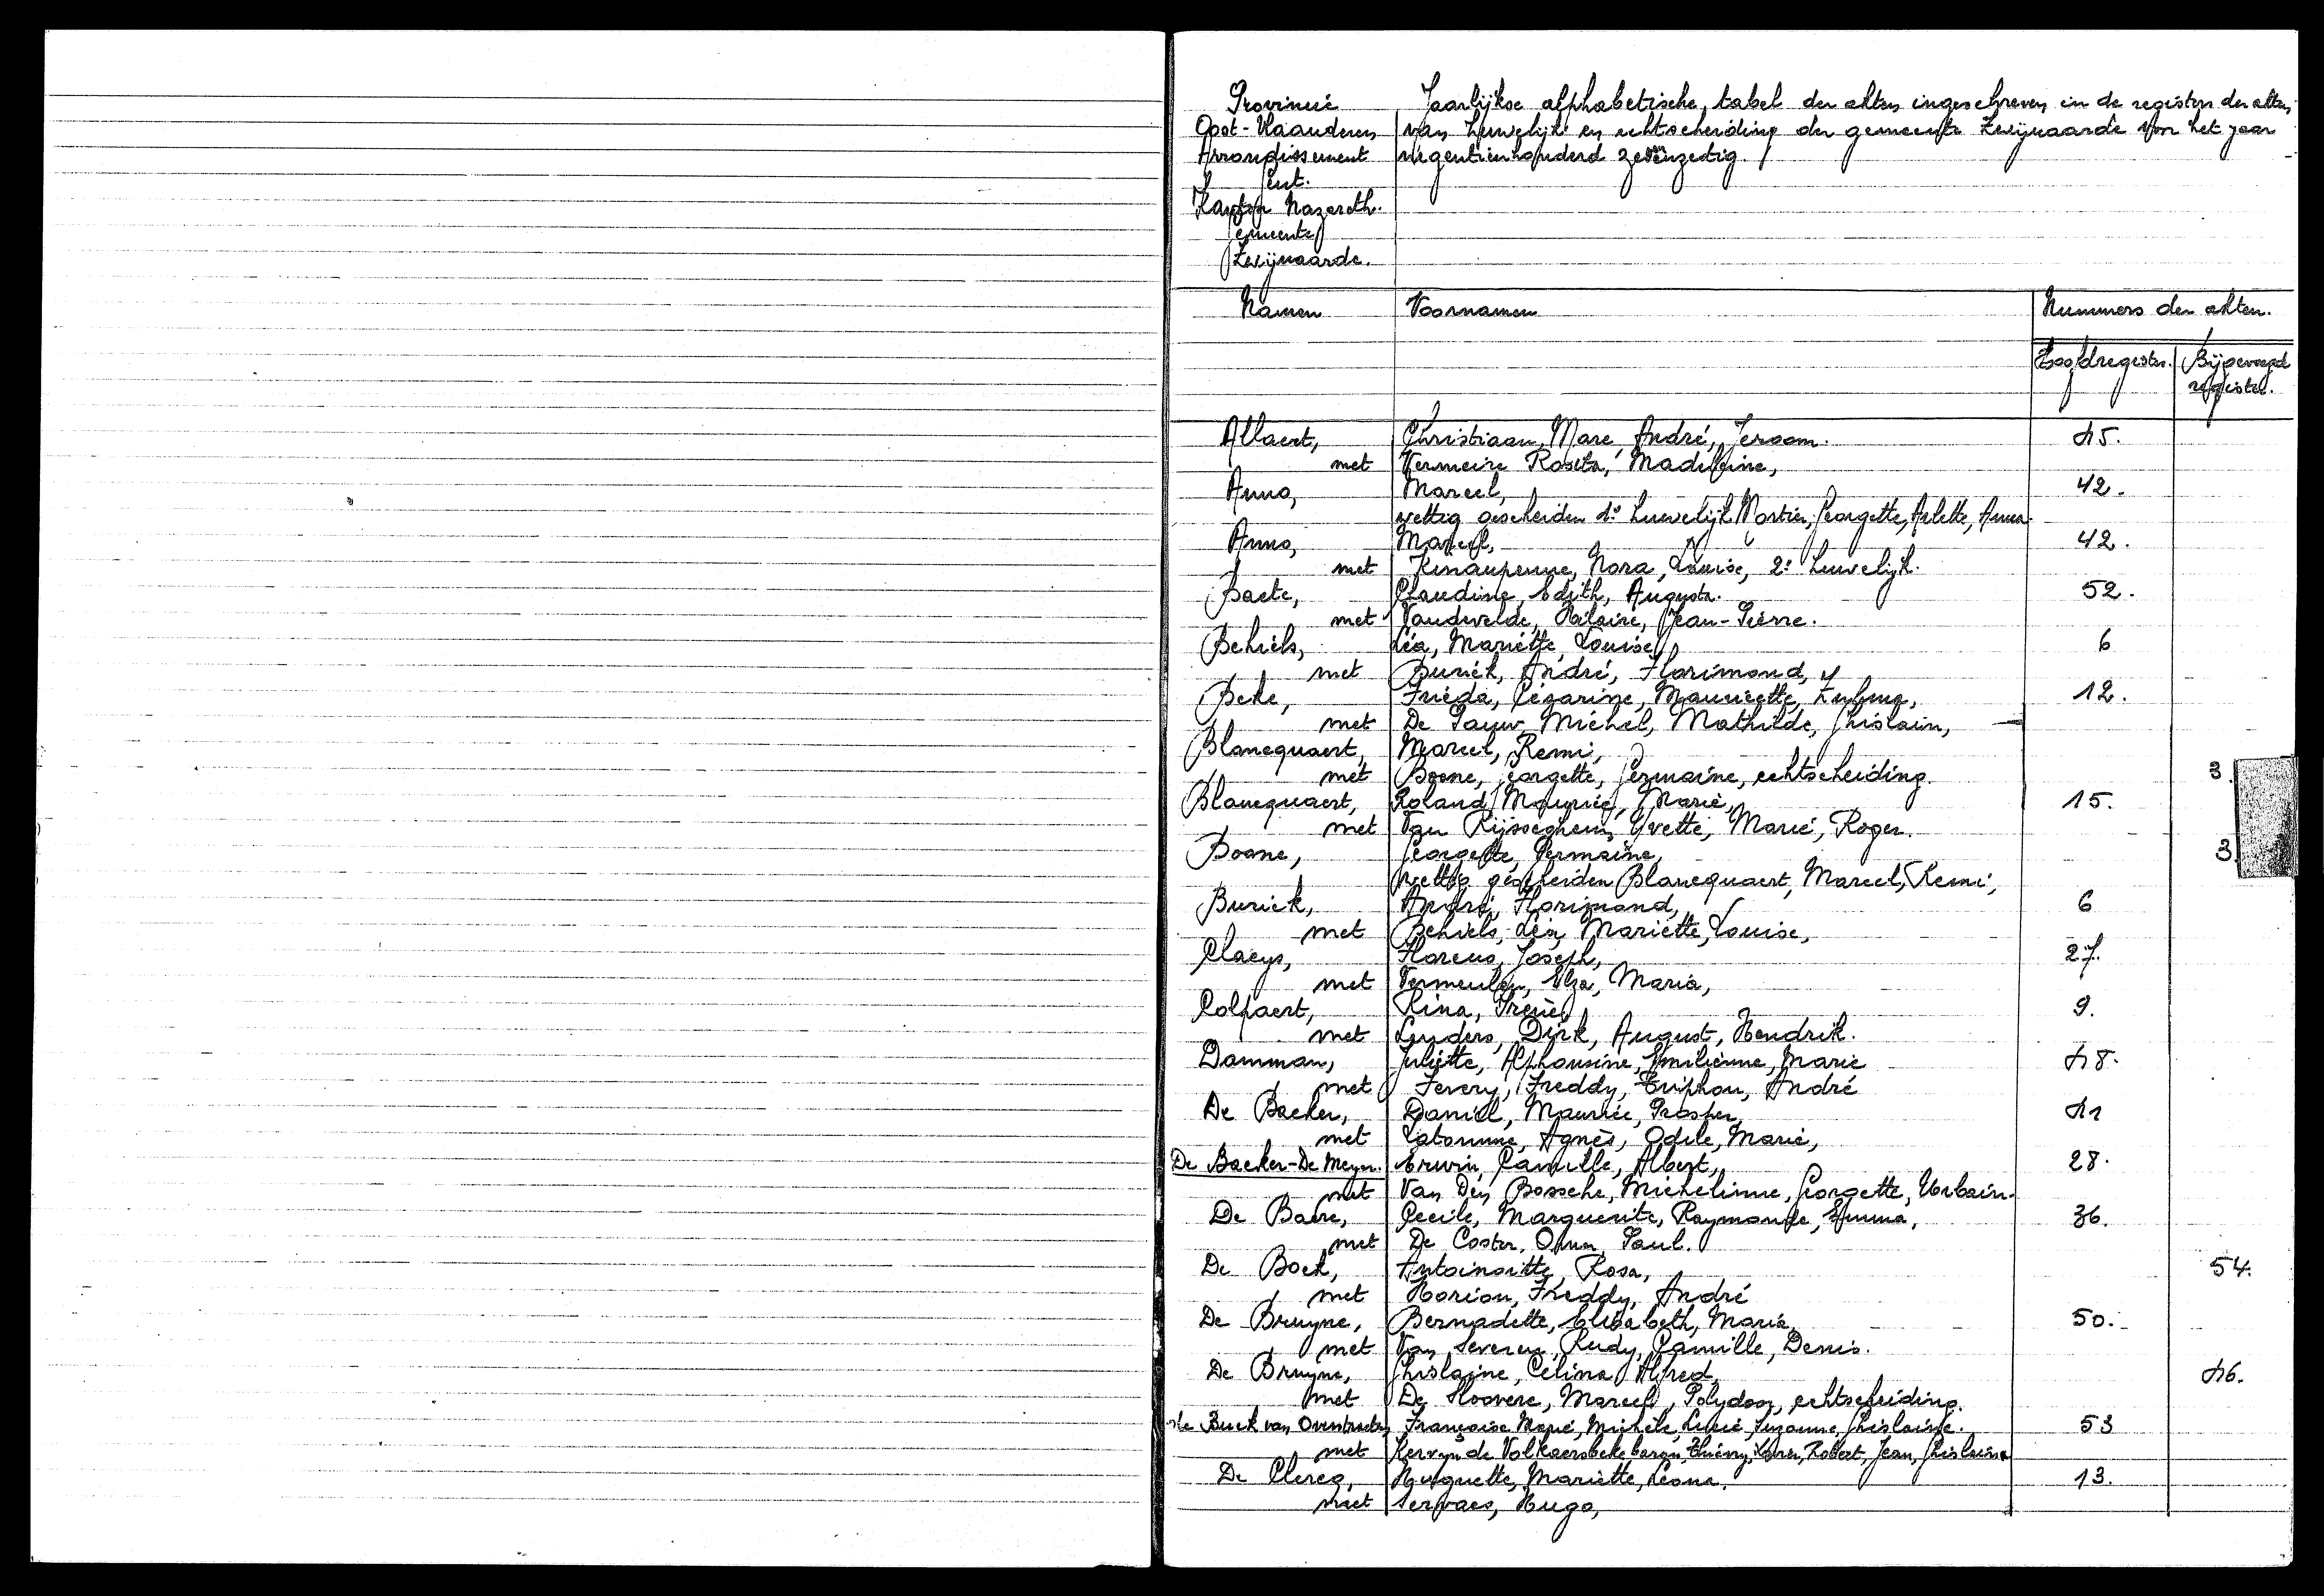 Provincie
Oost-Vlaanderen
Arrondissement
Gent.
Kanton Nazareth.
Gemeente
Zwijnaarde.
Jaarlijkse alphabetische tabel der akten ingeschreven in de registers der akten
van huwelijk en echtscheiding der gemeente Zwijnaarde voor het jaar
negentienhonderd zevenzestig.
Namen Voornamen Nummers der akten.
Hoofdregister. Bijgevoegd
register.
Allaert, Christiaan, Marc, André, Jeroom. 45.
met Vermeire Rosita, Madeleine,
Anno, Marcel, 42.
wettig gescheiden 1e huwelijk Mortier, Georgette, Arlette, Anna.
Anno, Marcel, 42.
met Nora, Louise, 2e huwelijk.
Baete, Claudine, Edith, Augusta. 52.
met Vandevelde, Hilaire, Jean-Pierre.
Behiels, Léa, Mariette, Louise, 6
met Buriek, André, Florimond,
Beke, Frieda, Cézarine, Mauricette, 12.
met De Pauw, Michel, Mathilde, Ghislain,
Blancquaert, Marcel, Remi,
met Boone, Georgette, Germaine, echtscheiding. 3.
Blancquaert, Roland, Maurice, Marie, 15.
met Van Rijsseghem, Yvette, Marie, Roger.
Boone, Georgette, Germaine, 3.
wettig gescheiden Blancquaert, Marcel, Remi,
Buriek, André, Florimond, 6
met Behiels, Léa, Mariette, Louise,
Claeys, Florens, Joseph, 27.
met Vermeulen, Elza, Maria,
Colpaert, Rina, Irene, 9.
met Leyders, Dirk, August, Hendrik.
Damman, Juliette, Alphonsine, Emilienne, Marie 48.
met Fevery, Freddy, Triphon, André
De Backer, Daniel, Maurice, Prosper, 41
met Latomme, Agnès, Odile, Marie,
De Backer-De Meyer. Erwin, Camille, Albert, 28.
met Van Den Bossche, Michelinne, Georgette, Urbain.
De Baere, Cecile, Marguerite, Raymonde, Emma, 36.
met De Coster, Omer, Paul.
De Bock, Antoinette, Rosa, 54.
met Horion, Freddy, André
De Bruyne, Bernadette, Elisabeth, Maria, 50.
met Van Severen, Rudy, Camille, Denis.
De Bruyne, Ghislaine, Celina, Alfred, 46.
met De Hoovere, Marcel, Polydoor, echtscheiding.
de Buck van Overstraeten Françoise, Marie, Michèle, Lucie, Suzanne, Ghislaine. 53
met Kervyn de Volkaersbeke baron, Thierry, Robert, Jean, Ghislain
De Clercq, Huguette, Mariette, Leona. 13.
met Servaes, Hugo,